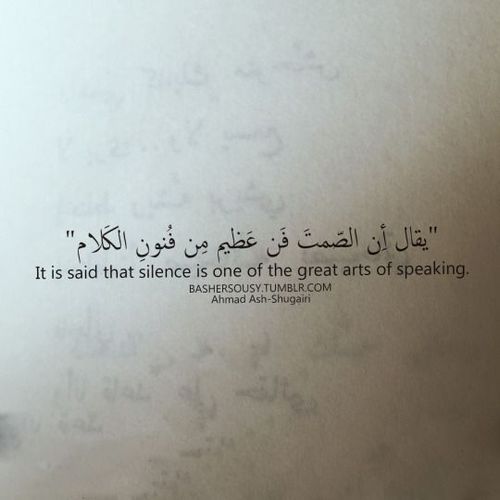 "يقال أِن الصّمتَ فَن عَظيم مِن فُنونِ الكَلام"
It is said that silence is one of the great arts of speaking.
BASHERSOUSY.TUMBLR.COM
Ahmad Ash-Shugairi